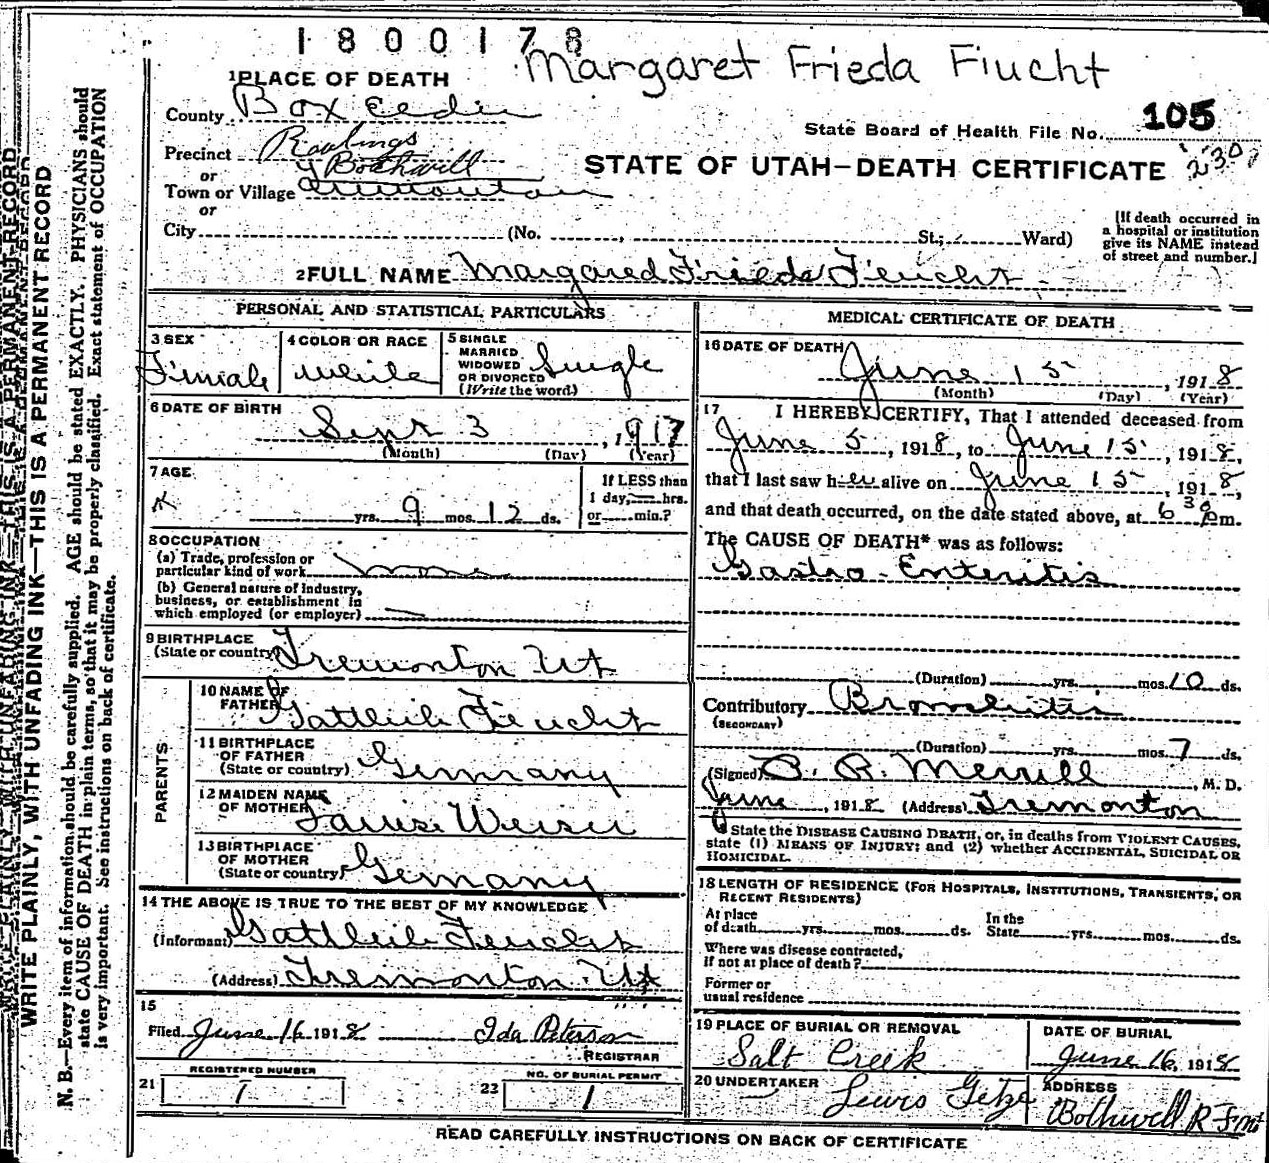 1800178
Margaret Frieda Fiucht
1 PLACE OF DEATH
County Box Elder
Precinct Rawlings
or Bothwell
Town or Village Tremonton
or
City (No. , St.; Ward)
State Board of Health File No. 105
STATE OF UTAH—DEATH CERTIFICATE
230
[If death occurred in
a hospital or institution
give its NAME instead
of street and number.]
2 FULL NAME Margared Frieda Feucht
PERSONAL AND STATISTICAL PARTICULARS
3 SEX
Female
4 COLOR OR RACE
White
5 SINGLE
MARRIED
WIDOWED
OR DIVORCED
(Write the word)
Single
6 DATE OF BIRTH
Sept 3, 1917
(Month) (Day) (Year)
7 AGE
yrs. 9 mos. 12 ds.
If LESS than
1 day, hrs.
or min.?
8 OCCUPATION
(a) Trade, profession or
particular kind of work none
(b) General nature of industry,
business, or establishment in
which employed (or employer)
9 BIRTHPLACE
(State or country) Tremonton Ut
PARENTS
10 NAME OF
FATHER Gattleib Feucht
11 BIRTHPLACE
OF FATHER
(State or country) Germany
12 MAIDEN NAME
OF MOTHER Louise Weiser
13 BIRTHPLACE
OF MOTHER
(State or country) Gemany
14 THE ABOVE IS TRUE TO THE BEST OF MY KNOWLEDGE
(Informant) Gattleib Feucht
(Address) Tremonton Ut
15
Filed June 16 1918 Ida Peterson
REGISTRAR
21 REGISTERED NUMBER
1
22 NO. OF BURIAL PERMIT
1
MEDICAL CERTIFICATE OF DEATH
16 DATE OF DEATH
June 15, 1918
(Month) (Day) (Year)
17 I HEREBY CERTIFY, That I attended deceased from
June 5, 1918, to June 15, 1918,
that I last saw her alive on June 15, 1918,
and that death occurred, on the date stated above, at 6 30 pm.
The CAUSE OF DEATH* was as follows:
Gastro-Enteritis
(Duration) yrs. mos. 10 ds.
Contributory Bronchitis
(SECONDARY)
(Duration) yrs. mos. 7 ds.
(Signed) Merrill, M. D.
June, 1918 (Address) Tremonton
State the DISEASE CAUSING DEATH, or, in deaths from VIOLENT CAUSES,
state (1) MEANS OF INJURY; and (2) whether ACCIDENTAL, SUICIDAL OR
HOMICIDAL.
18 LENGTH OF RESIDENCE (FOR HOSPITALS, INSTITUTIONS, TRANSIENTS, OR
RECENT RESIDENTS)
At place
of death yrs. mos. ds.
In the
State yrs. mos. ds.
Where was disease contracted,
If not at place of death?
Former or
usual residence
19 PLACE OF BURIAL OR REMOVAL
Salt Creek
DATE OF BURIAL
June 16, 1918
20 UNDERTAKER
Lewis Getze
ADDRESS
Bothwell
READ CAREFULLY INSTRUCTIONS ON BACK OF CERTIFICATE
WRITE PLAINLY, WITH UNFADING INK—THIS IS A PERMANENT RECORD
N. B.—Every item of information should be carefully supplied. AGE should be stated EXACTLY. PHYSICIANS should
state CAUSE OF DEATH in plain terms, so that it may be properly classified. Exact statement of OCCUPATION
is very important. See instructions on back of certificate.